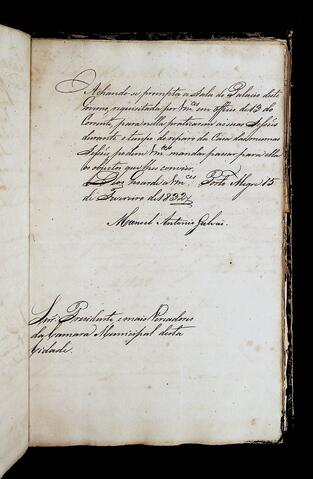 Achando-se prompta a Sala do Palacio deste
Governo, requisitada por Vm.ces em officio de 13 do
Corrente, para nella praticarem as suas Sessões
durante o tempo do reparo da Casa das mesmas
Sessões podem Vm.ces mandar passar para ella
os objectos que lhes convier.
Deos Guarde a Vm.ces Porto Alegre 15
de Fevereiro de 1832
Manoel Antonio Galvão
Snr.es Presidente e mais Vereadores
da Camara Municipal desta
Cidade.